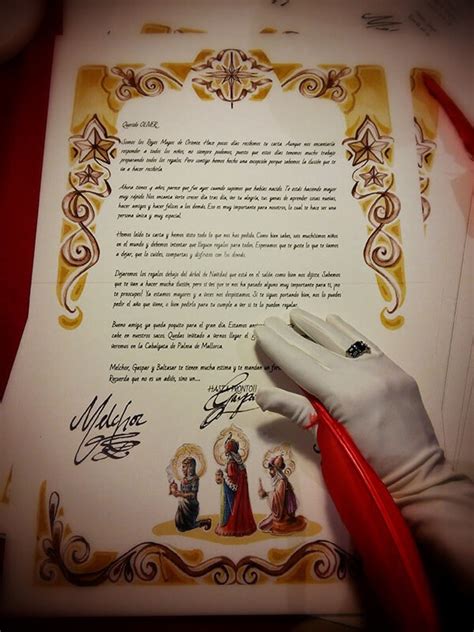 Querido OLIVER,
Somos los Reyes Magos de Oriente. Hace pocos días recibimos tu carta. Aunque nos encantaría
responder a todos los niños, no siempre podemos, puesto que estos días tenemos mucho trabajo
preparando todos los regalos. Pero contigo hemos hecho una excepción porque sabemos la ilusión que te
va a hacer recibirla.
Ahora tienes 4 años, parece que fue ayer cuando supimos que habías nacido. Te estás haciendo mayor
muy rápido. Nos encanta verte crecer día tras día, ver tu alegría, tus ganas de aprender cosas nuevas,
hacer amigos y hacer felices a los demás. Eso es muy importante para nosotros, lo cual te hace ser una
persona única y muy especial.
Hemos leído tu carta y hemos visto todo lo que nos has pedido. Como bien sabes, hay muchísimos niños en el
mundo y debemos intentar que lleguen regalos para todos. Esperamos que te guste lo que te vamos
a dejar, que lo cuides, compartas y disfrutes con los demás.
Dejaremos los regalos debajo del árbol de Navidad que está en el salón como bien nos dijiste. Sabemos
que te van a hacer mucha ilusión, pero si ves que se nos ha pasado alguno muy importante para ti, ¡no
te preocupes! Ya estamos mayores y a veces nos despistamos. Si te sigues portando bien, nos lo puedes
pedir el año que viene, o bien pedirlo para tu cumple a ver si te lo pueden regalar.
Bueno amigo, ya queda poquito para el gran día. Estamos
en nuestros sacos. Quedas invitado a vernos llegar el
veremos en la Cabalgata de Palma de Mallorca.
Melchor, Gaspar y Baltasar te tienen mucha estima y te mandan un
Recuerda que no es un adiós, sino un...
HASTA PRONTO!!
Melchor
Gaspar